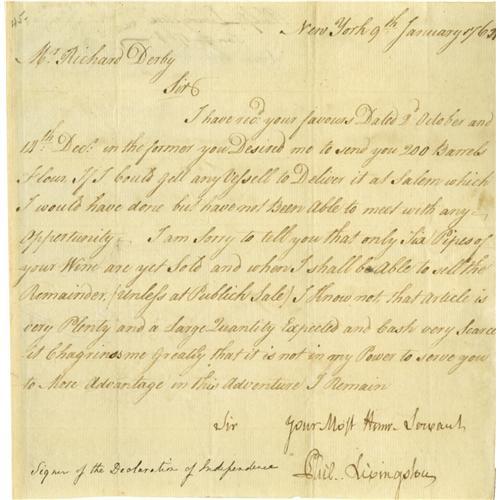 45.
New York 9th January 176
Mr Richard Derby
Sir
I have recd your favours Dated 2d October and
14th Decr in the former you Desired me to send you 200 Barrels
Flour If I Could gett any Vessell to Deliver it at Salem which
I would have done but have not Been Able to meet with any
Opportunity. I am Sorry to tell you that only Six Pipes of
your Wine are yet Sold and when I shall be Able to sell the
Remainder, (Unless at Publick Sale) I Know not that Article is
very Plenty and a Large Quantity Expected and Cash very Scarce
it Chagrines me Greatly that it is not in my Power to serve you
to More Advantage in this Adventure I Remain
Sir Your Most Humr Servant
Phil. Livingston
Signer of the Declaration of Independence